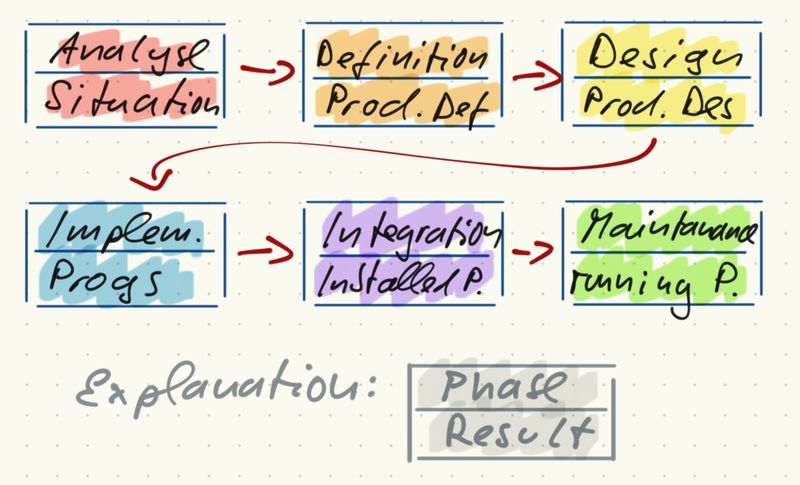 Analyse
Situation
Definition
Prod. Def
Design
Prod. Des
Implem.
Progs
Integration
Installed P.
Maintanance
running P.
Explanation:
Phase
Result